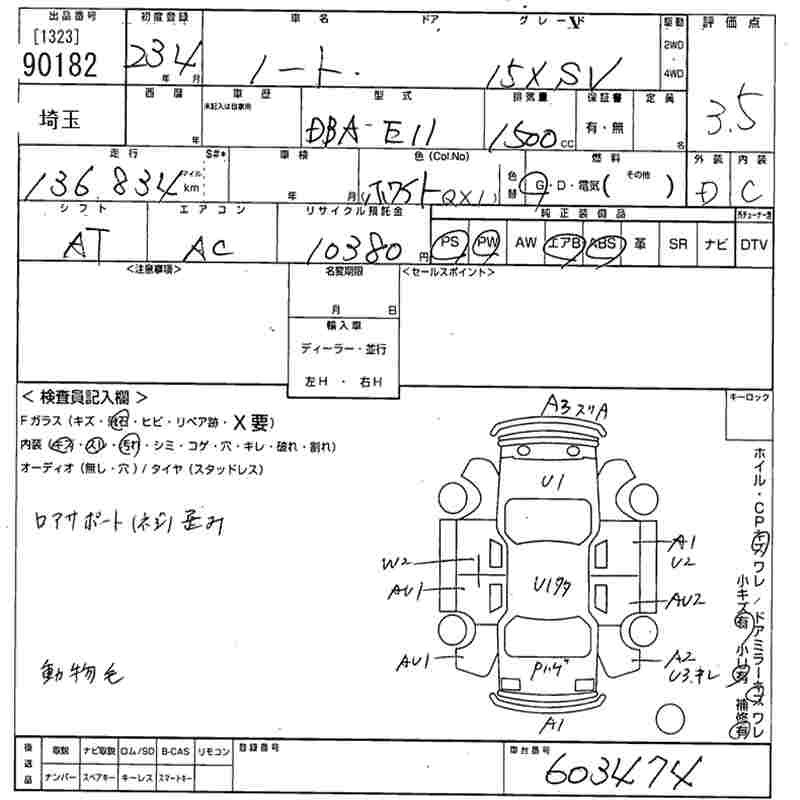 出品番号 初度登録 車名 ドア グレード 駆動 評価点
[1323]
90182 23 4 年 月 ノート 15X SV 2WD ・ 4WD 3.5
埼玉 西暦 年 車歴 未記入は自家用 型式 排気量 保証書 定員
DBA-E11 1500 cc 有・無 名
走行 S#* 車検 色(Col.No) 色替 燃料 外装 内装
136,834 マイル km 年 月 (ホワイト QX1) G・D・電気( その他 ) D C
シフト エアコン リサイクル預託金 純正装備品
AT AC 10380 円 PS PW AW エアB ABS 革 SR ナビ DTV
<注意事項> 名変期限 <セールスポイント>
月 日
輸入車
ディーラー・並行
左H ・ 右H
<検査員記入欄> キーロック
Fガラス(キズ・飛石・ヒビ・リペア跡・X要)
内装(キズ・スレ・汚れ・シミ・コゲ・穴・キレ・破れ・割れ)
オーディオ(無し・穴)/タイヤ(スタッドレス)
ロアサポート(ネジ)歪み
動物毛
A3 スリA
U1
A1
U2
W2
AU1
U1タタ
AU2
AU1
A2
U3.キレ
A1
ホイル・CPキズワレ/ドアミラーキズワレ
小キズ有 小U有 補修有
後送品 取説 ナビ取説 ロム/SD B-CAS リモコン 登録番号 車台番号
ナンバー スペアキー キーレス スマートキー 603474